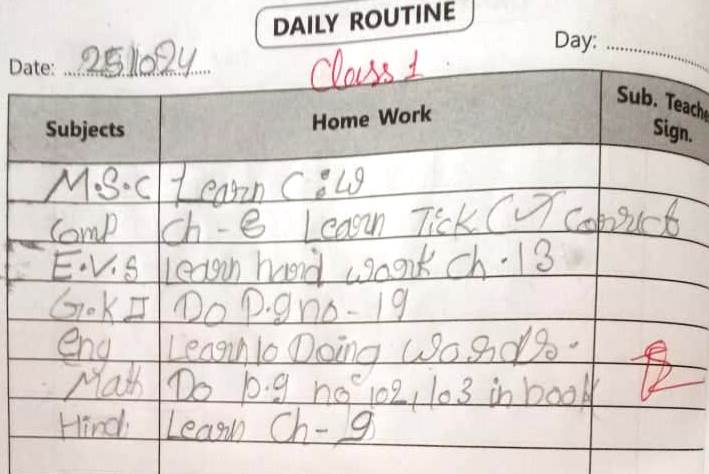 DAILY ROUTINE
Date: 25/10/24 Day:
Class 1
Subjects Home Work Sub. Teache Sign.
M.S.C Learn C:W
Comp Ch - 6 Learn Tick (✓) Correct
E.V.S Learn hard work Ch.13
G.K II Do P.g no - 19
Eng Learn 10 Doing words.
Math Do p.g no 102, 103 in book
Hindi Learn Ch - 9